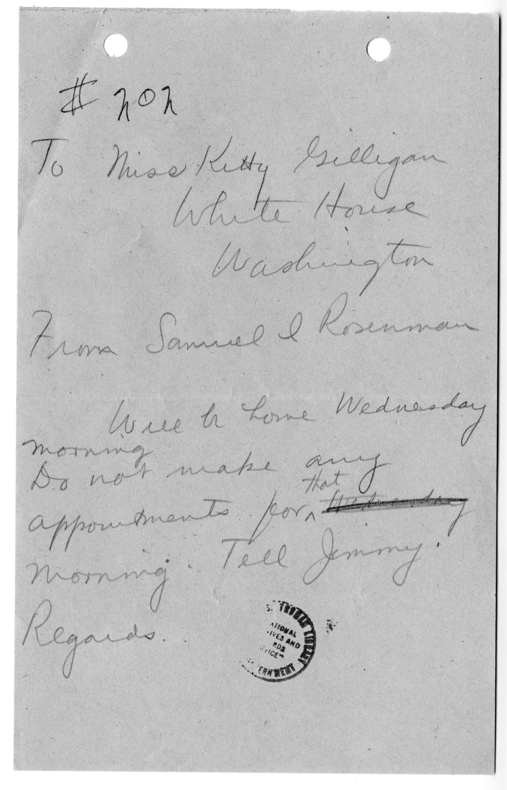 # 202
To Miss Kitty Gilligan
White House
Washington
From Samuel I Rosenman
Will be home Wednesday
morning
Do not make any
appointments for ^that ~~Wednesday~~
morning. Tell Jimmy.
Regards.
S. TRUMAN LIBRARY
ATIONAL
IVES AND
RDS
VICE
ERNMENT